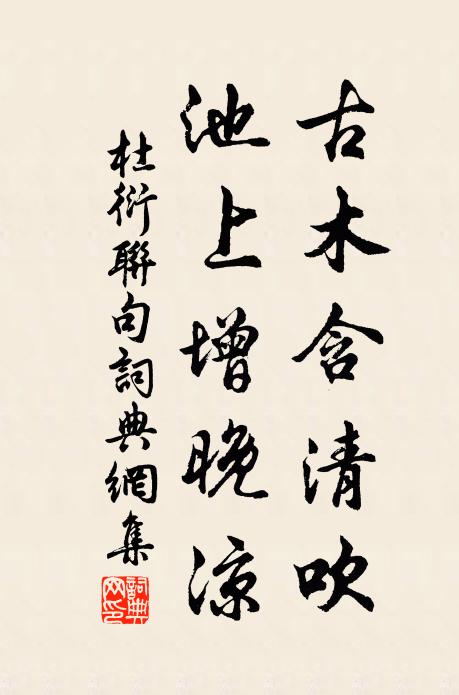 古木含清吹
池上增晚凉
杜衍聯句詞典網集
詞典网印